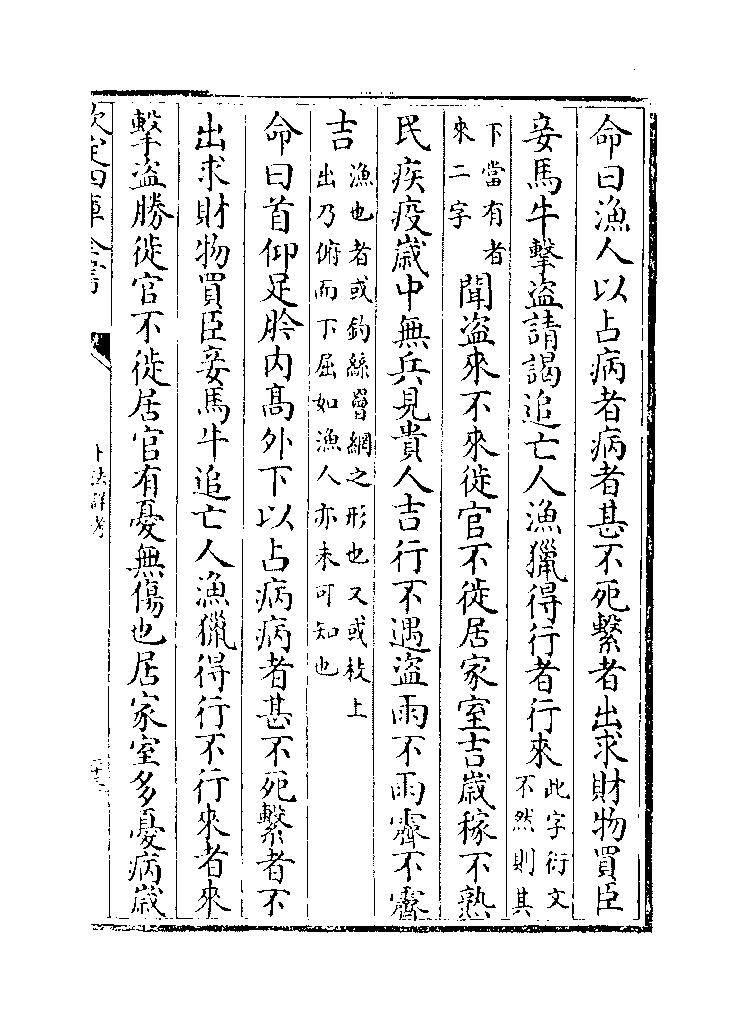 命曰漁人以占病者病者甚不死繫者出求財物買臣
妾馬牛擊盜請謁追亡人漁獵得行者行來此字衍文不然則其
下當有者來二字聞盜來不來徙官不徙居家室吉歲稼不熟
民疾疫歲中無兵見貴人吉行不遇盜雨不雨霽不霽
吉漁也者或釣絲罾網之形也又或枝上出乃俯而下屈如漁人亦未可知也
命曰首仰足肣内高外下以占病病者甚不死繫者不
出求財物買臣妾馬牛追亡人漁獵得行不行來者來
擊盜勝徙官不徙居官有憂無傷也居家室多憂病歲
欽定四庫全書
卜法詳考